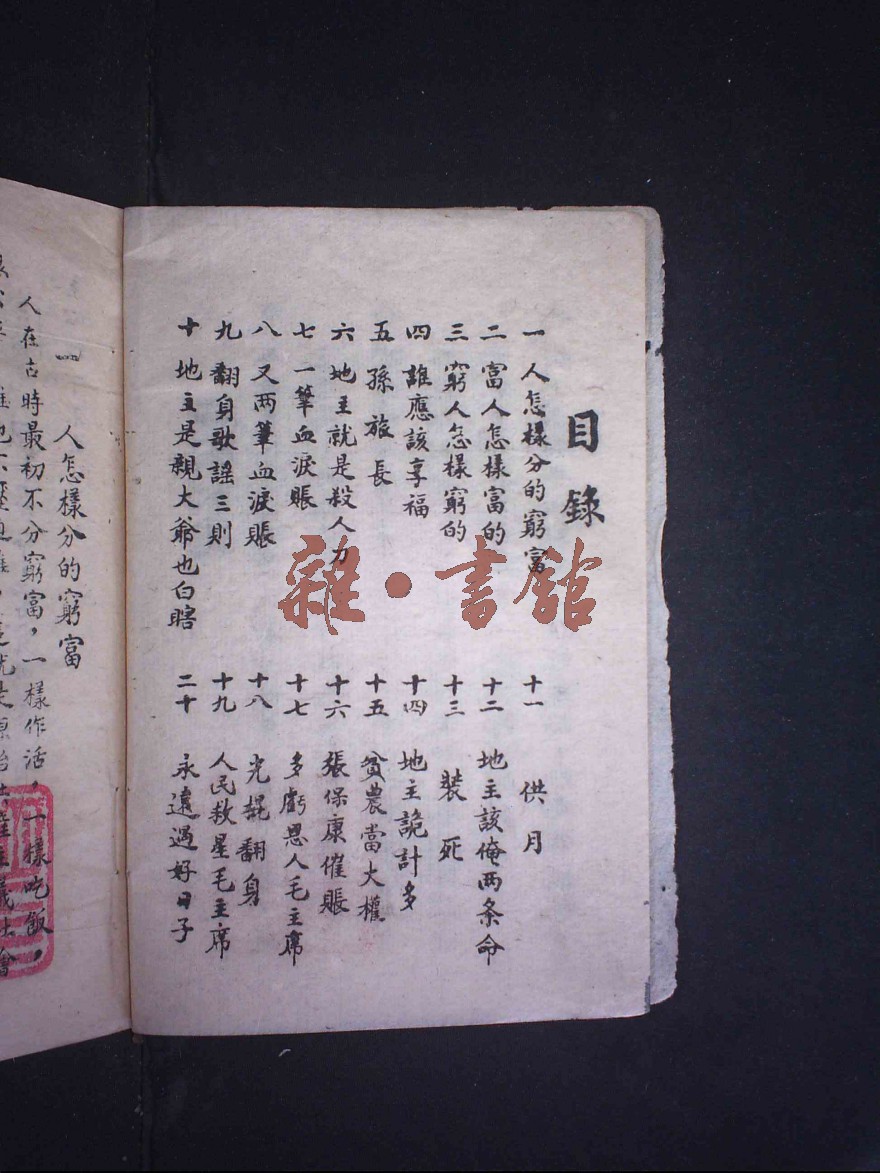 目錄
一 人怎樣分的窮富
二 富人怎樣富的
三 窮人怎樣窮的
四 誰應該享福
五 孫旅長
六 地主就是殺人刀
七 一筆血淚賬
八 又两筆血淚賬
九 翻身歌謠三則
十 地主是親大爺也白瞎
十一 供月
十二 地主該俺两条命
十三 裝死
十四 地主詭計多
十五 貧農當大權
十六 張保康催賬
十七 多虧恩人毛主席
十八 光棍翻身
十九 人民救星毛主席
二十 永遠過好日子
雜·書館
一 人怎樣分的窮富
人在古時最初不分窮富，一樣作活，一樣吃飯，